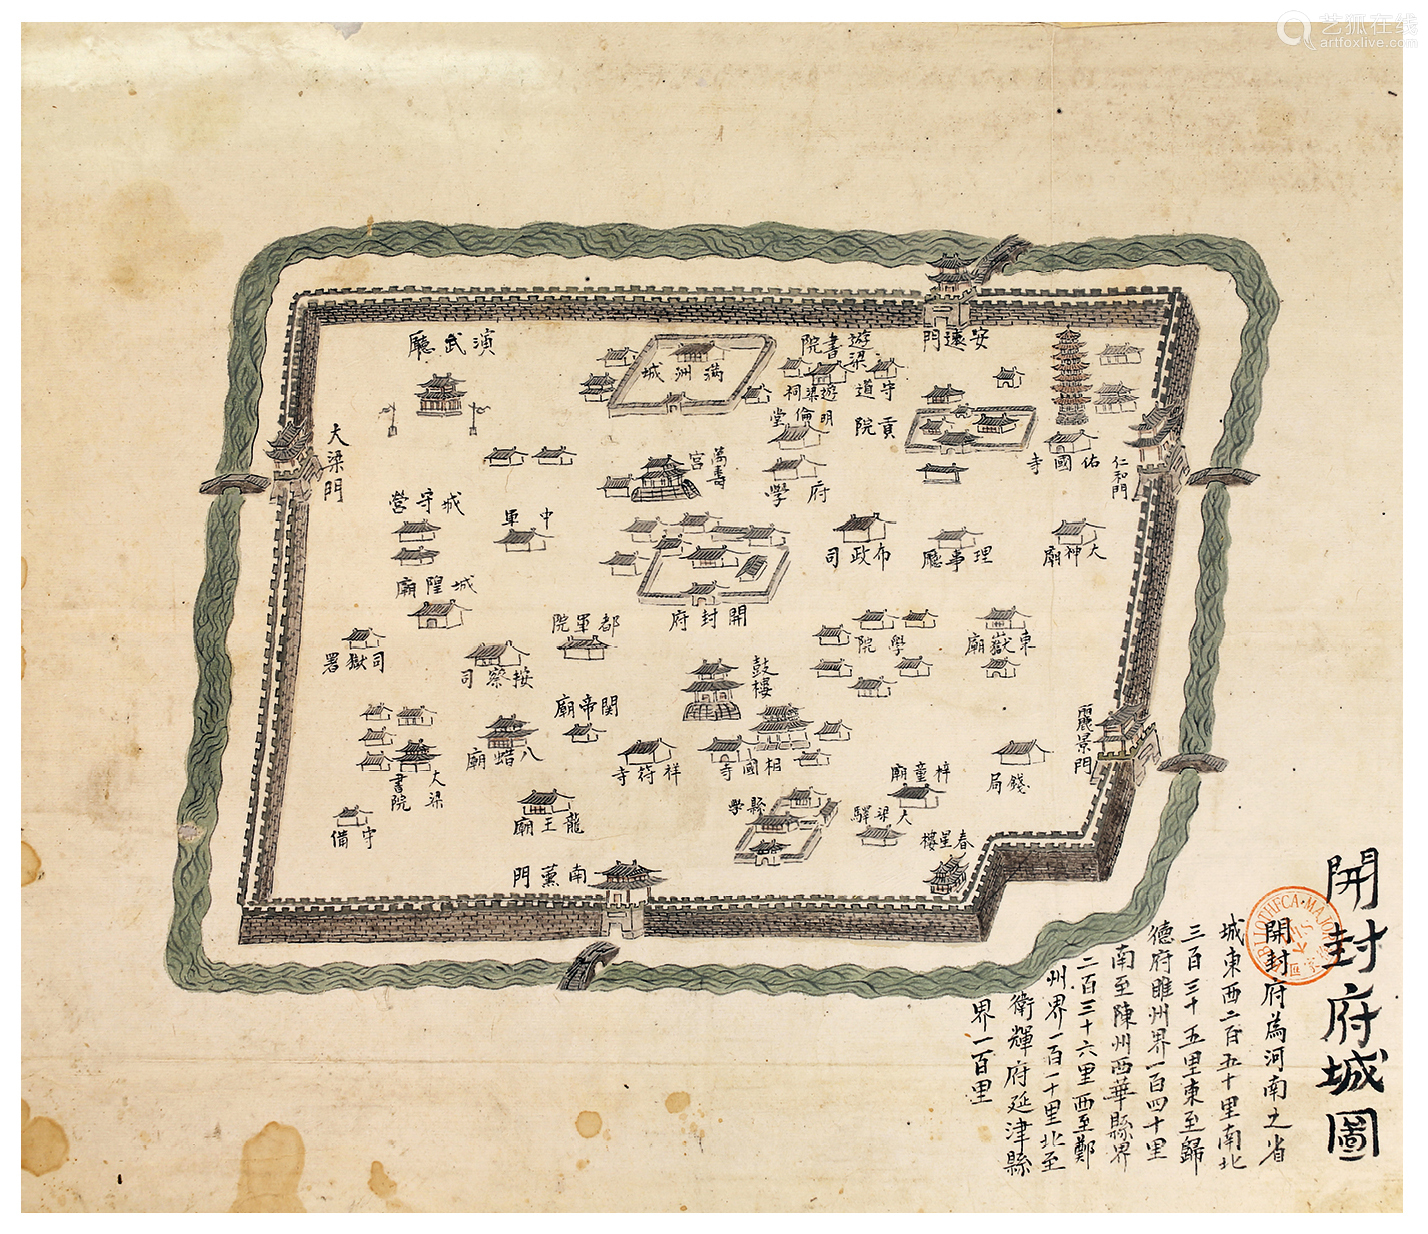 艺狐在线
artfoxlive.com
開封府城圖
開封府為河南之省
城東西二百五十里南北
三百三十五里東至歸
德府睢州界一百四十里
南至陳州西華縣界
二百三十六里西至鄭
州界一百一十里北至
衛輝府延津縣
界一百里
安遠門
遊梁書院
守道
遊梁祠
明倫堂
貢院
滿洲城
演武廳
大梁門
佑國寺
仁和門
萬壽宮
府學
城守營
中軍
布政司
理事廳
大神廟
城隍廟
開封府
都軍院
學院
東嶽廟
司獄署
按察司
鼓樓
關帝廟
麗景門
八蜡廟
祥符寺
相國寺
梓童廟
錢局
大梁書院
龍王廟
縣學
大梁驛
春星樓
守備
南薰門
BIBLIOTHECA MAJOR